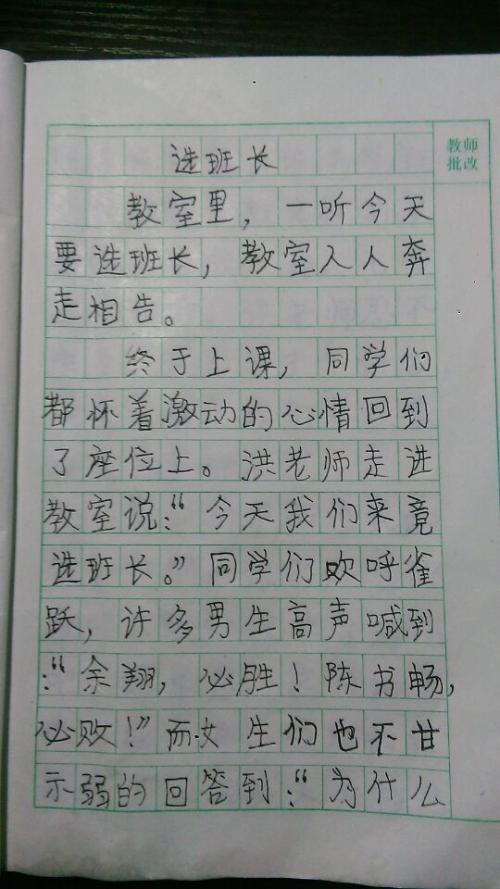 教师
批改
选班长
教室里，一听今天
要选班长，教室入人奔
走相告。
终于上课，同学们
都怀着激动的心情回到
了座位上。洪老师走进
教室说：“今天我们来竟
选班长。”同学们欢呼雀
跃，许多男生高声喊到
：“余翔，必胜！陈书畅，
必败！”而女生们也不甘
示弱的回答到：“为什么